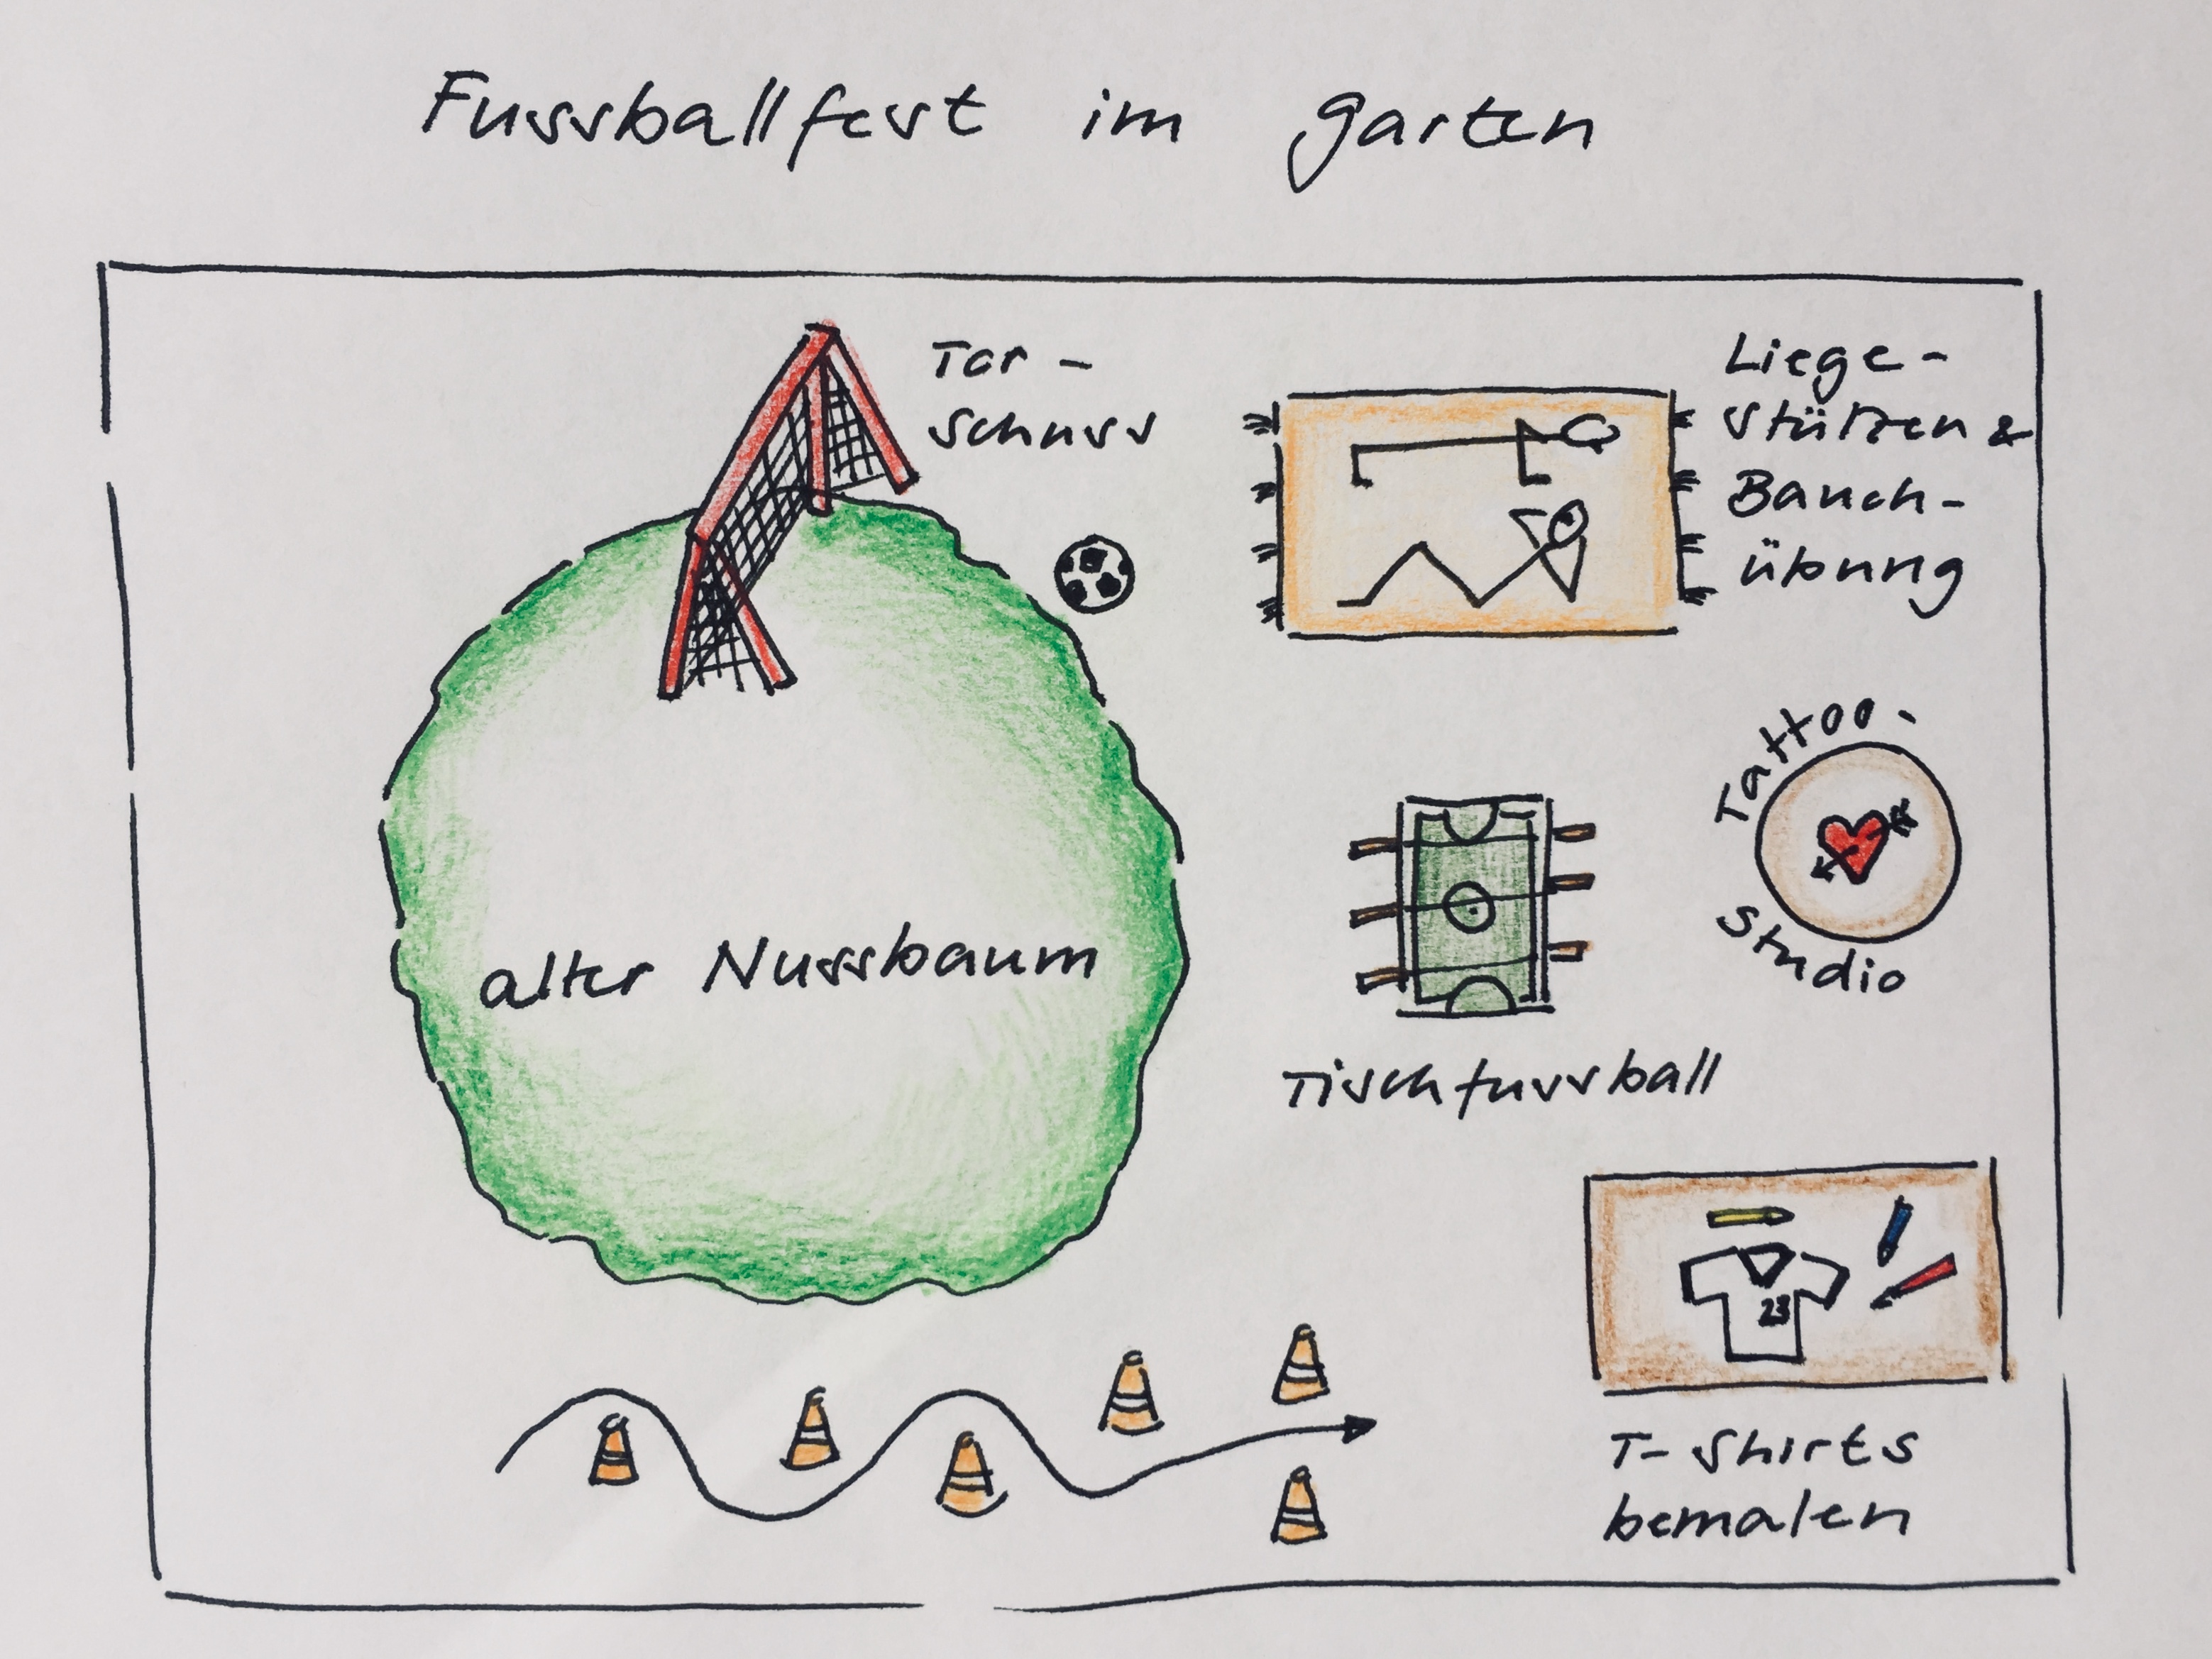 Fussballfest im Garten
Tor-
schuss
Liege-
stützen &
Bauch-
übung
Tattoo-
Studio
alter Nussbaum
Tischfussball
23
T-Shirts
bemalen